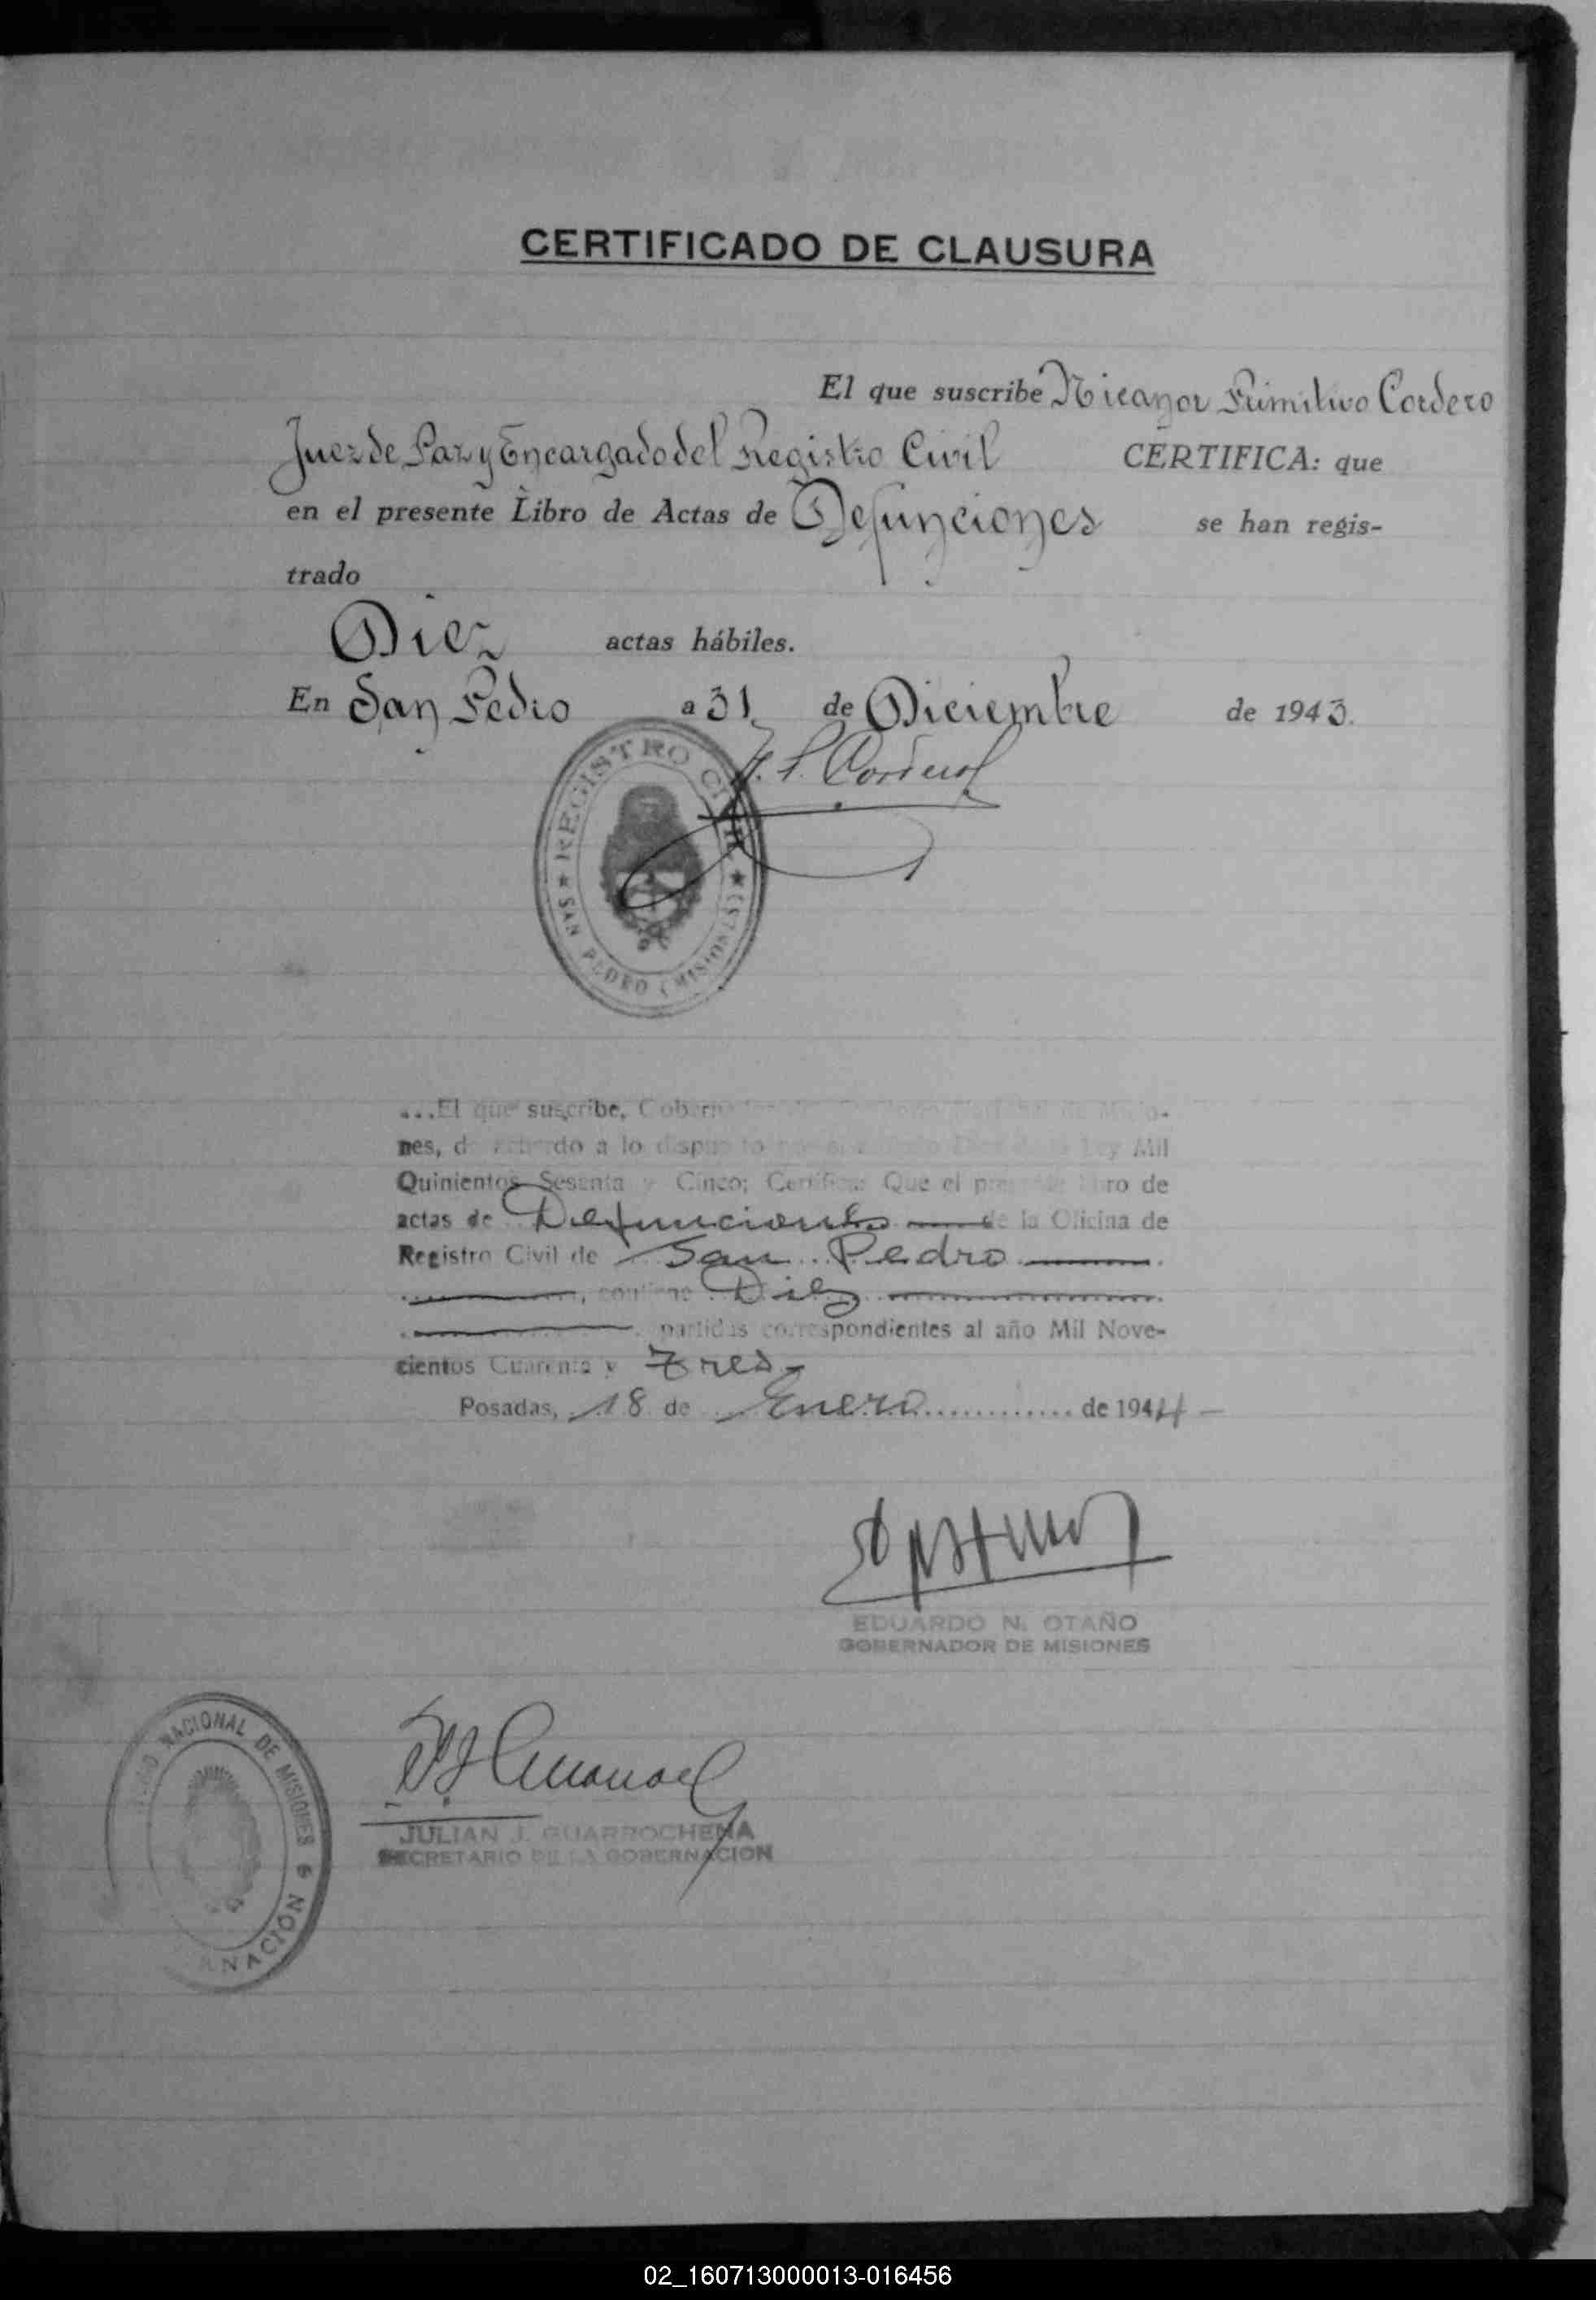 CERTIFICADO DE CLAUSURA
El que suscribe Nicanor Primitivo Cordero
Juez de Paz y Encargado del Registro Civil CERTIFICA: que
en el presente Libro de Actas de Defunciones se han regis-
trado
Diez actas hábiles.
En San Pedro a 31 de Diciembre de 1943.
N. P. Cordero
REGISTRO CIVIL
SAN PEDRO (MISIONES)
...El que suscribe, Gobern
nes, de acuerdo a lo dispuesto Ley Mil
Quinientos Sesenta y Cinco; Certifica: Que el presente libro de
actas de Defunciones de la Oficina de
Registro Civil de San Pedro
, contiene Diez
partidas correspondientes al año Mil Nove-
cientos Cuarenta y Tres
Posadas, 18 de Enero de 1944
EDUARDO N. OTAÑO
GOBERNADOR DE MISIONES
NACIONAL DE MISIONES
NACIÓN
JULIAN J. GUARROCHENA
SECRETARIO DE LA GOBERNACION
02_160713000013-016456